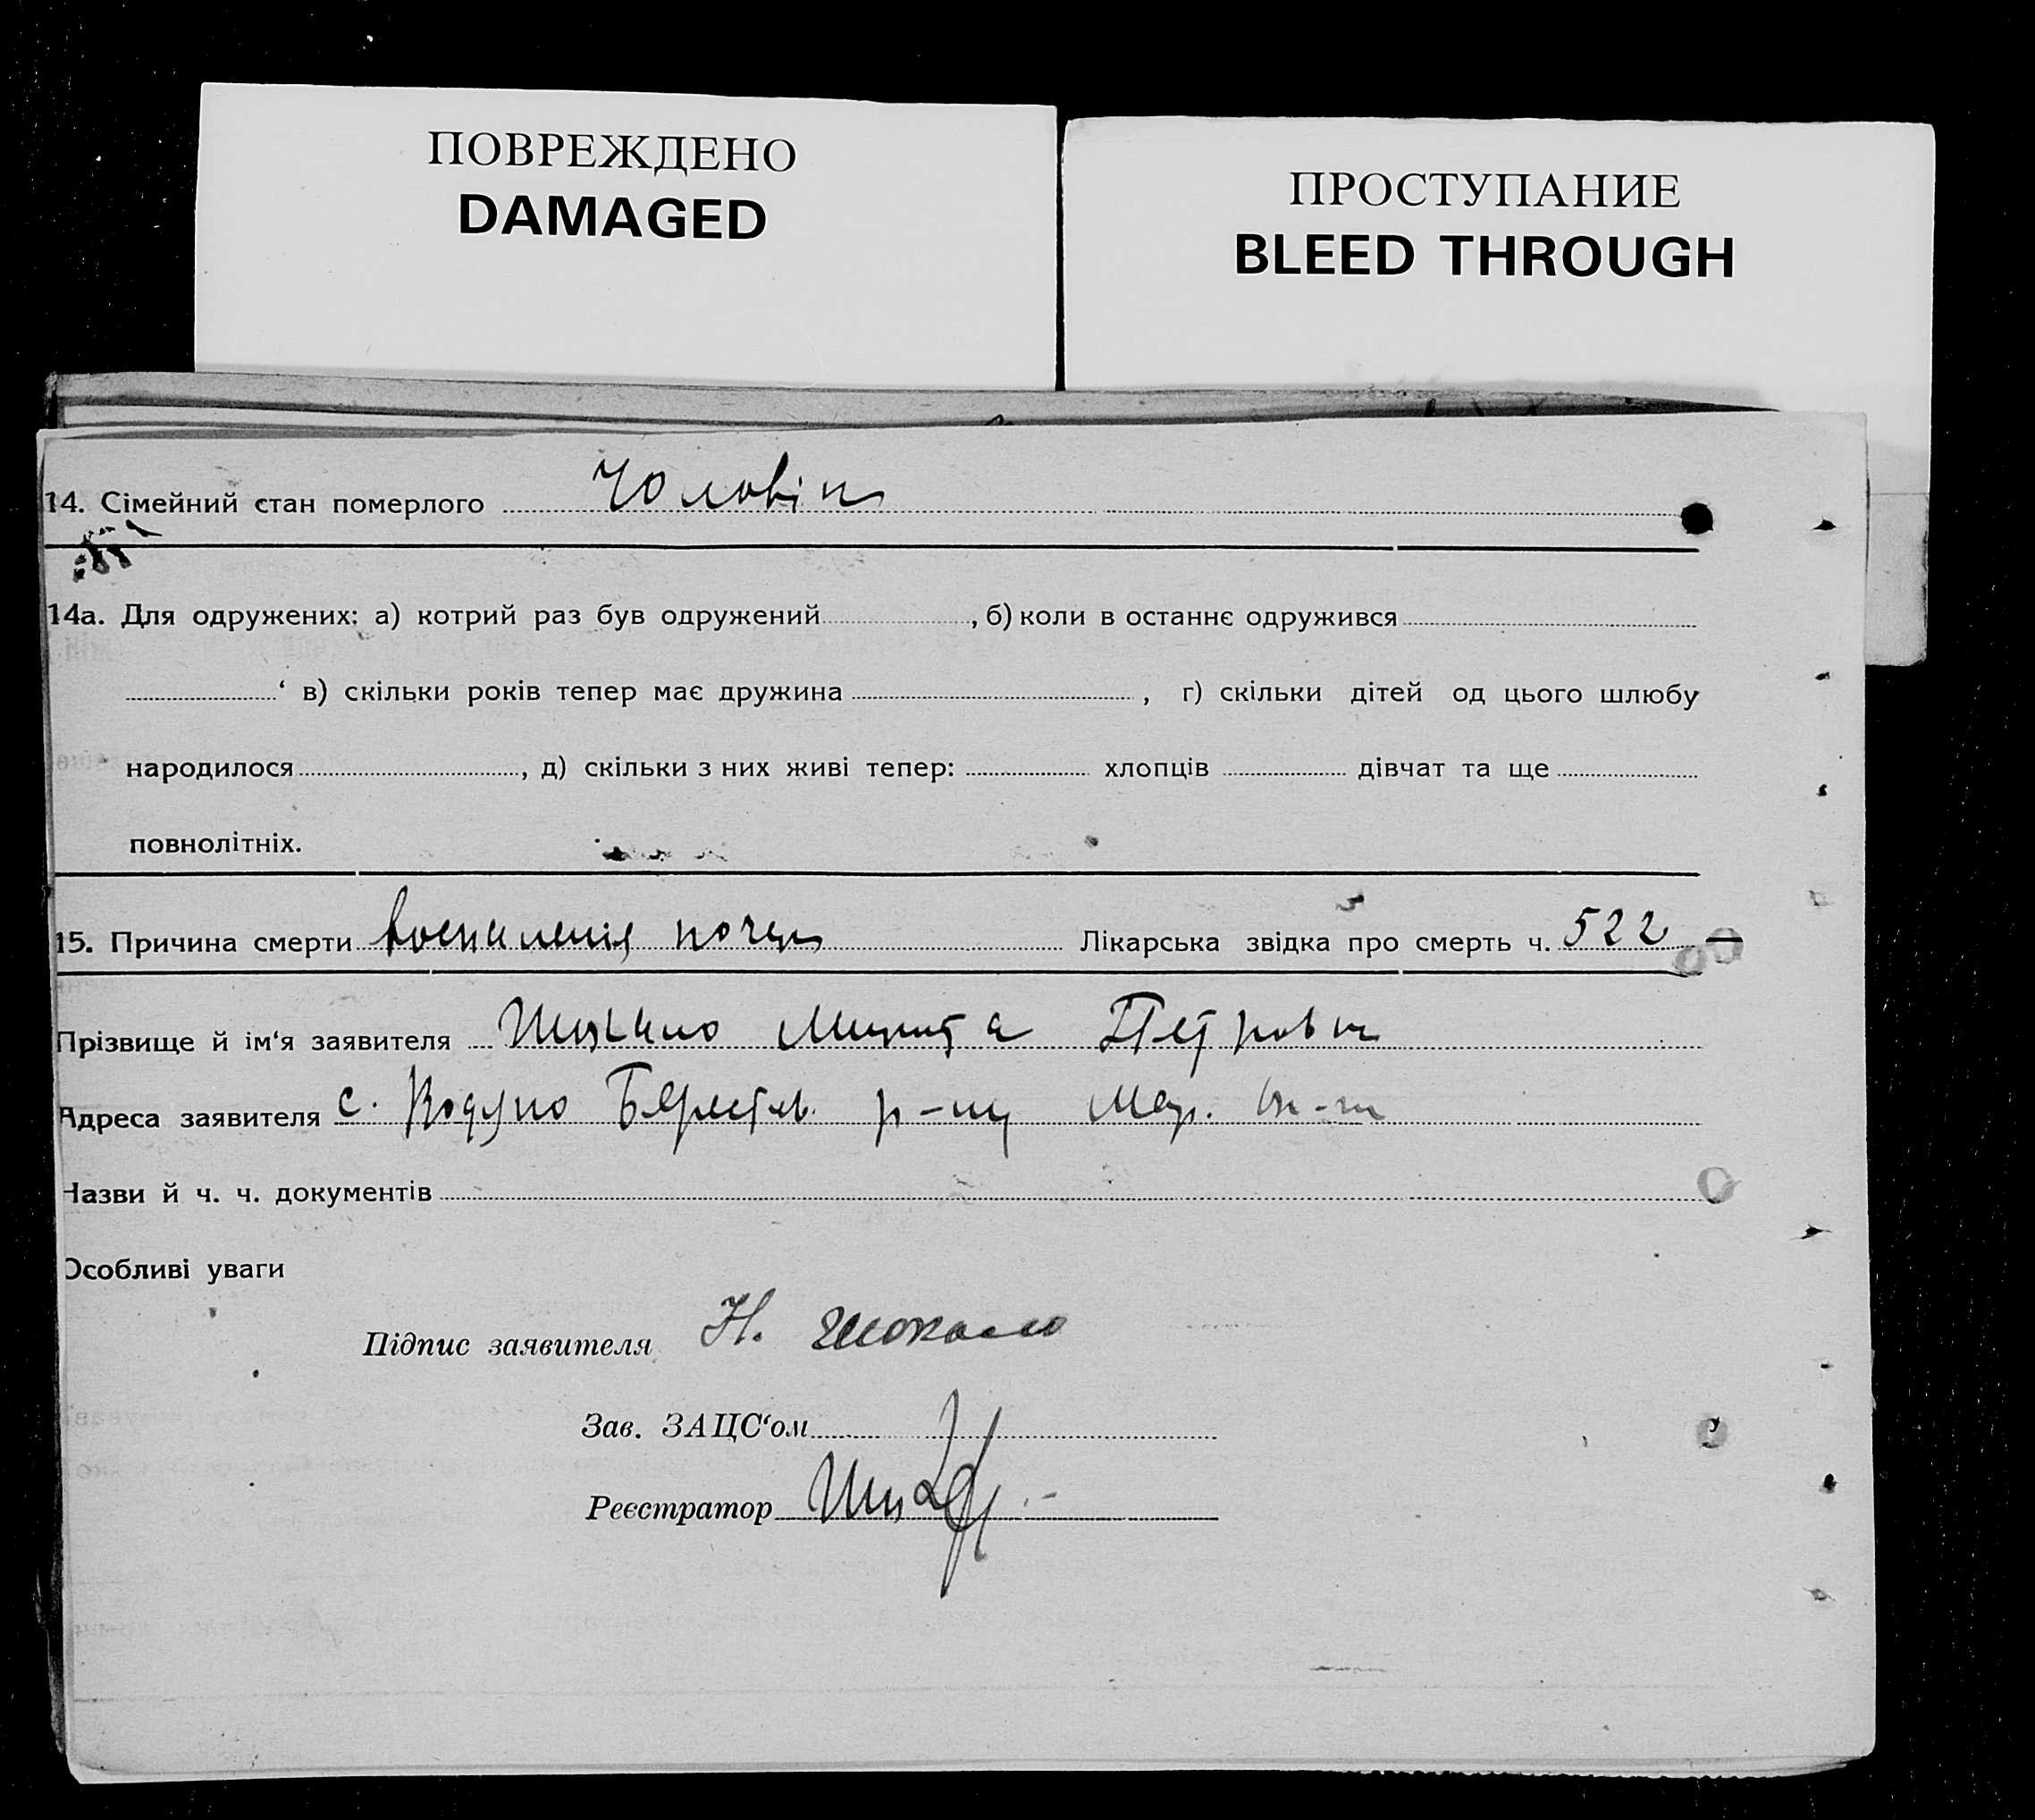 ПОВРЕЖДЕНО
DAMAGED
ПРОСТУПАНИЕ
BLEED THROUGH
14. Сімейний стан померлого Чоловік
14а. Для одружених: а) котрий раз був одружений , б) коли в останнє одружився
‘ в) скільки років тепер має дружина , г) скільки дітей од цього шлюбу
народилося , д) скільки з них живі тепер: хлопців дівчат та ще
повнолітніх.
15. Причина смерти воспиления почек Лікарська звідка про смерть ч. 522
Прізвище й ім‘я заявителя Микита Петрович
Адреса заявителя с. Водяно р-ну Мар. ок-ги
Назви й ч. ч. документів
Особливі уваги
Підпис заявителя Н. Шокало
Зав. ЗАЦС‘ом
Реєстратор